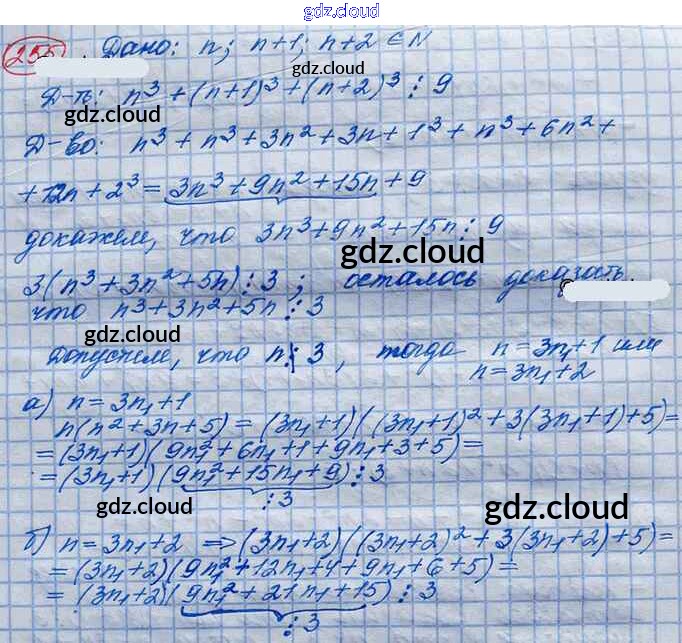 gdz.cloud
255 Дано: n; n+1; n+2 ∈ N
gdz.cloud
Д-ть: n³ + (n+1)³ + (n+2)³ ⋮ 9
gdz.cloud
Д-во: n³ + n³ + 3n² + 3n + 1³ + n³ + 6n² +
+ 12n + 2³ = 3n³ + 9n² + 15n + 9
докажем, что 3n³ + 9n² + 15n ⋮ 9
gdz.cloud
3(n³ + 3n² + 5n) ⋮ 3 ; осталось доказать,
что n³ + 3n² + 5n ⋮ 3
gdz.cloud
Допустим, что n ⋮̸ 3, тогда n = 3n₁+1 или
n = 3n₁+2
а) n = 3n₁+1
n(n² + 3n + 5) = (3n₁+1)((3n₁+1)² + 3(3n₁+1)+5) =
= (3n₁+1)(9n₁² + 6n₁ + 1 + 9n₁ + 3 + 5) =
= (3n₁+1)(9n₁² + 15n₁ + 9) ⋮ 3
⋮ 3
gdz.cloud gdz.cloud
б) n = 3n₁+2 ⇒ (3n₁+2)((3n₁+2)² + 3(3n₁+2)+5) =
= (3n₁+2)(9n₁² + 12n₁ + 4 + 9n₁ + 6 + 5) =
= (3n₁+2)(9n₁² + 21n₁ + 15) ⋮ 3
⋮ 3
gdz.cloud